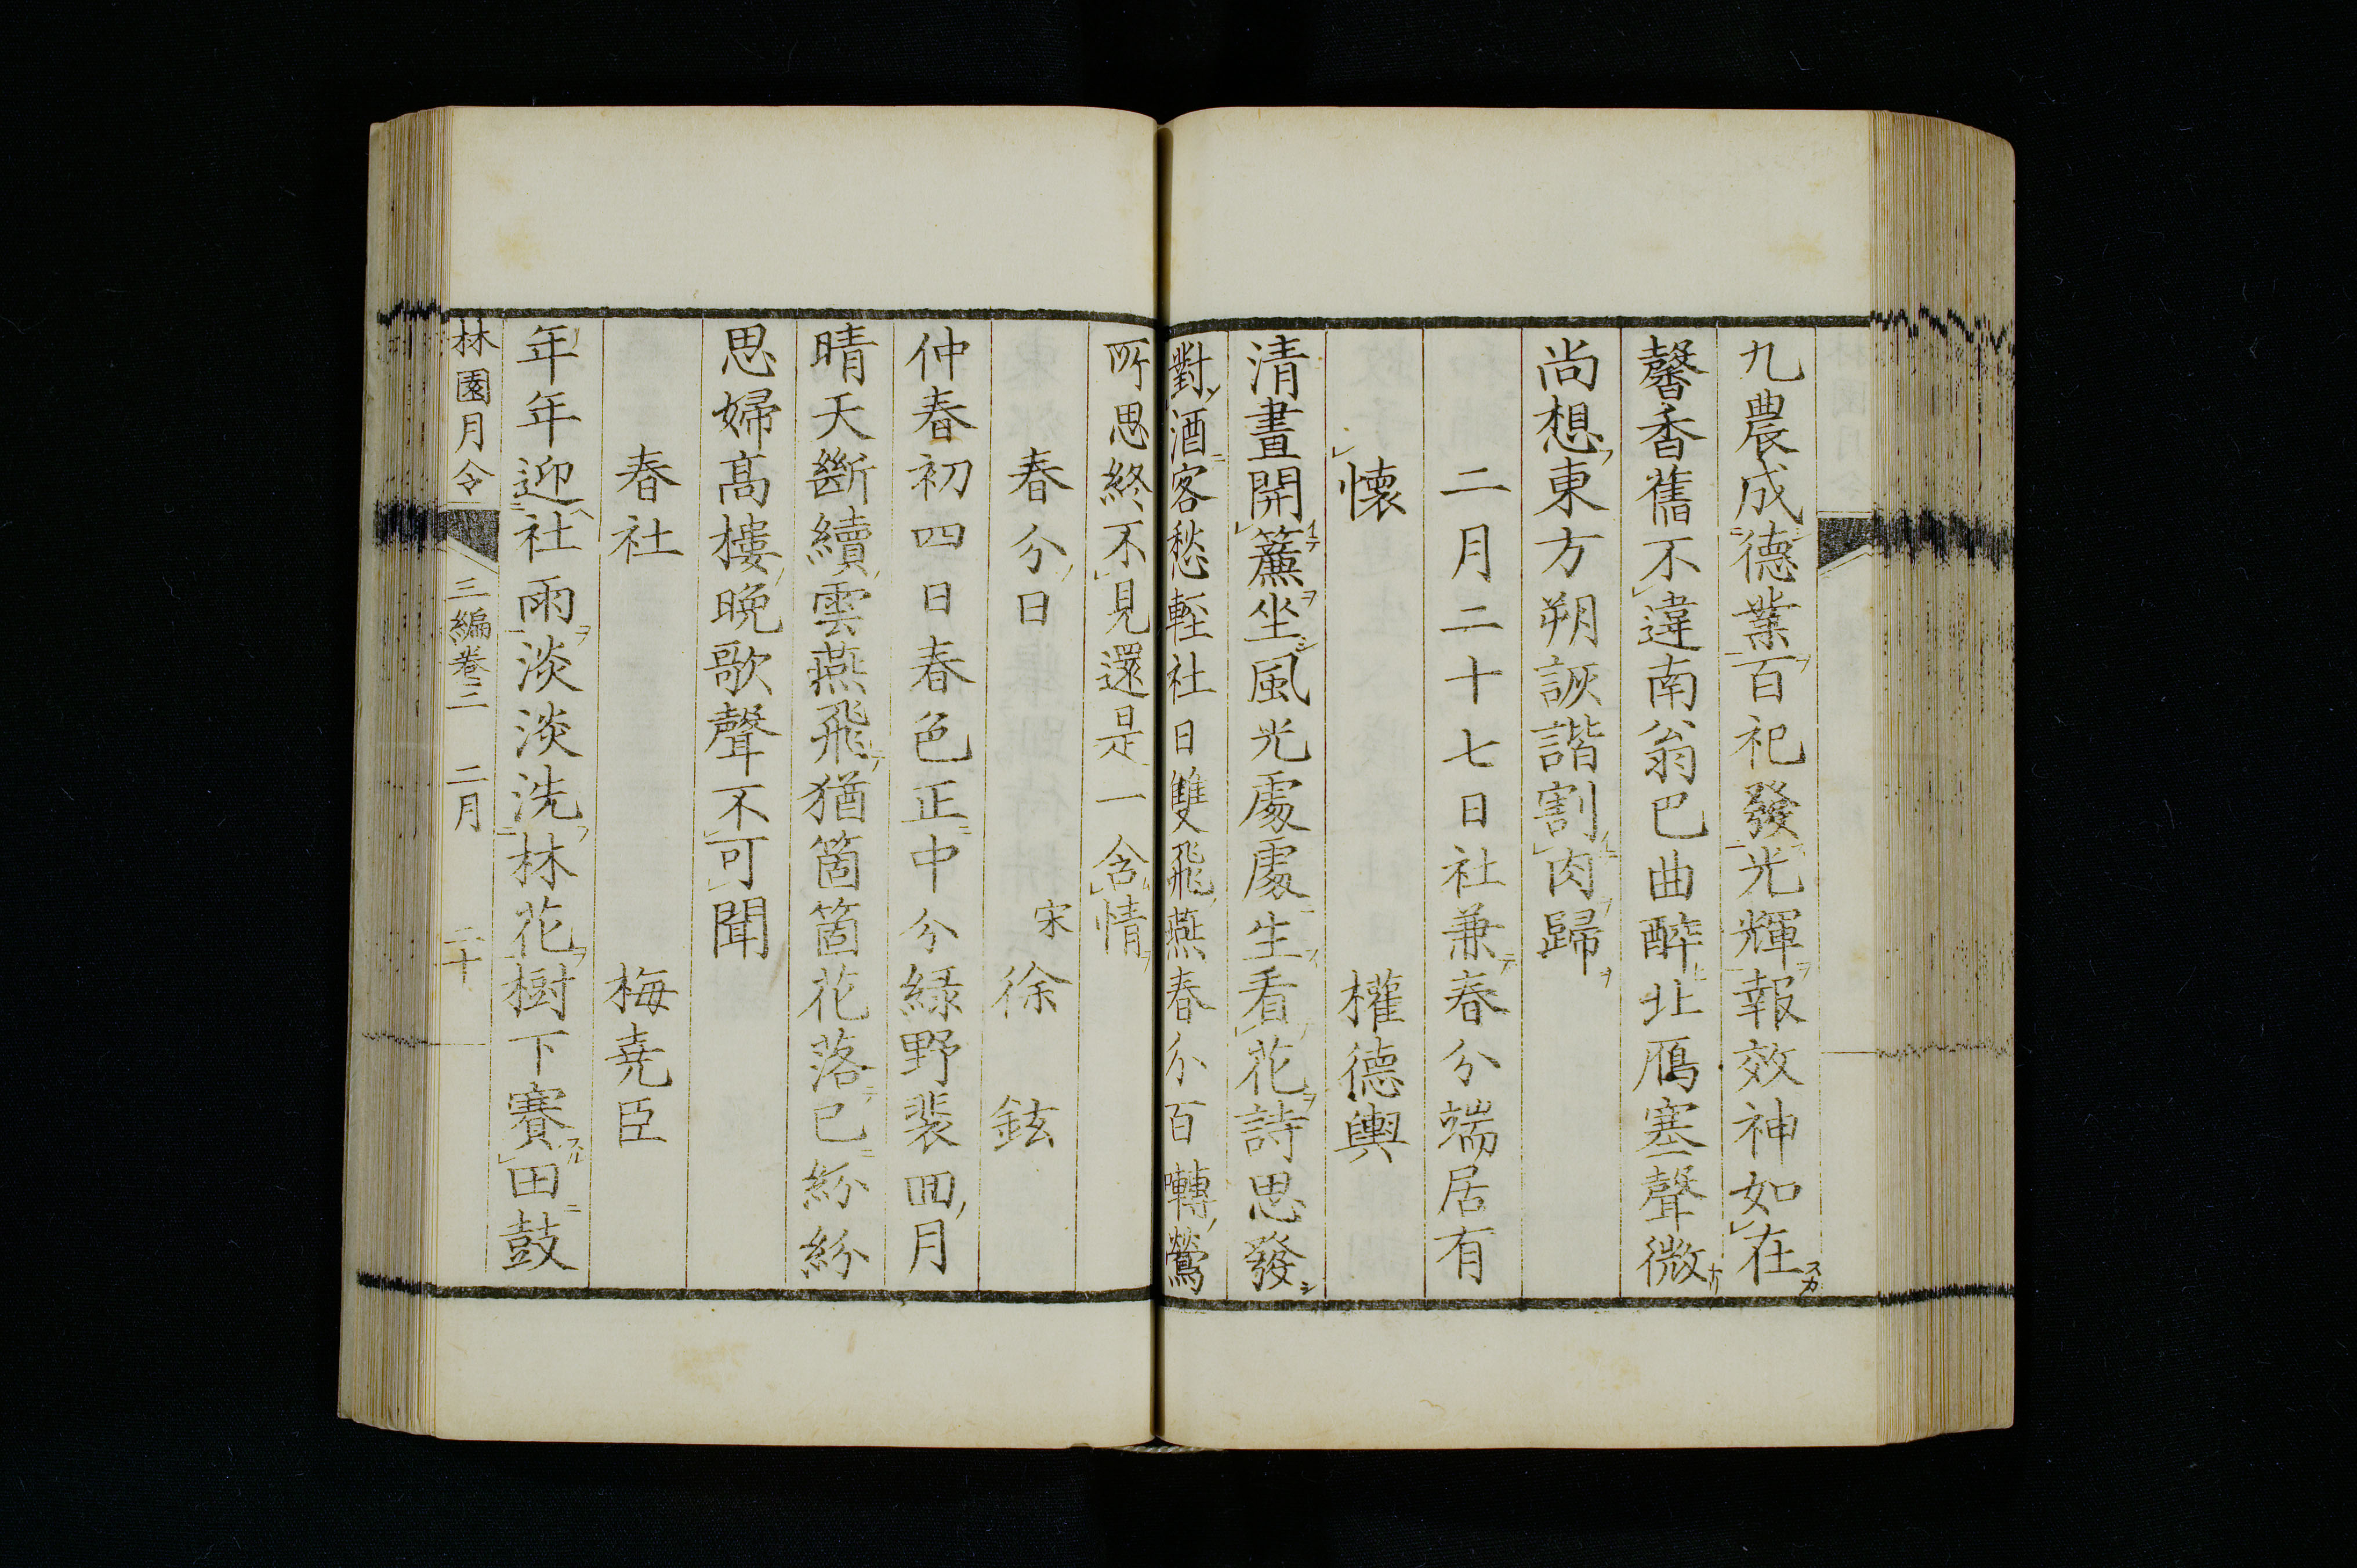 九農成德業百祀發光輝報效神如在
馨香舊不違南翁巴曲醉北鴈塞聲微
尚想東方朔詼諧割肉歸
二月二十七日社兼春分端居有
懷　權德輿
清晝開簾坐風光處處生看花詩思發
對酒客愁輕社日雙飛燕春分百囀鶯
所思終不見還是一含情
春分日　宋　徐鉉
仲春初四日春色正中分綠野裴囬月
晴天斷續雲燕飛猶箇箇花落已紛紛
思婦高樓晚歌聲不可聞
春社　梅堯臣
年年迎社雨淡淡洗林花樹下賽田鼓
林園月令　三編卷二　二月　二十